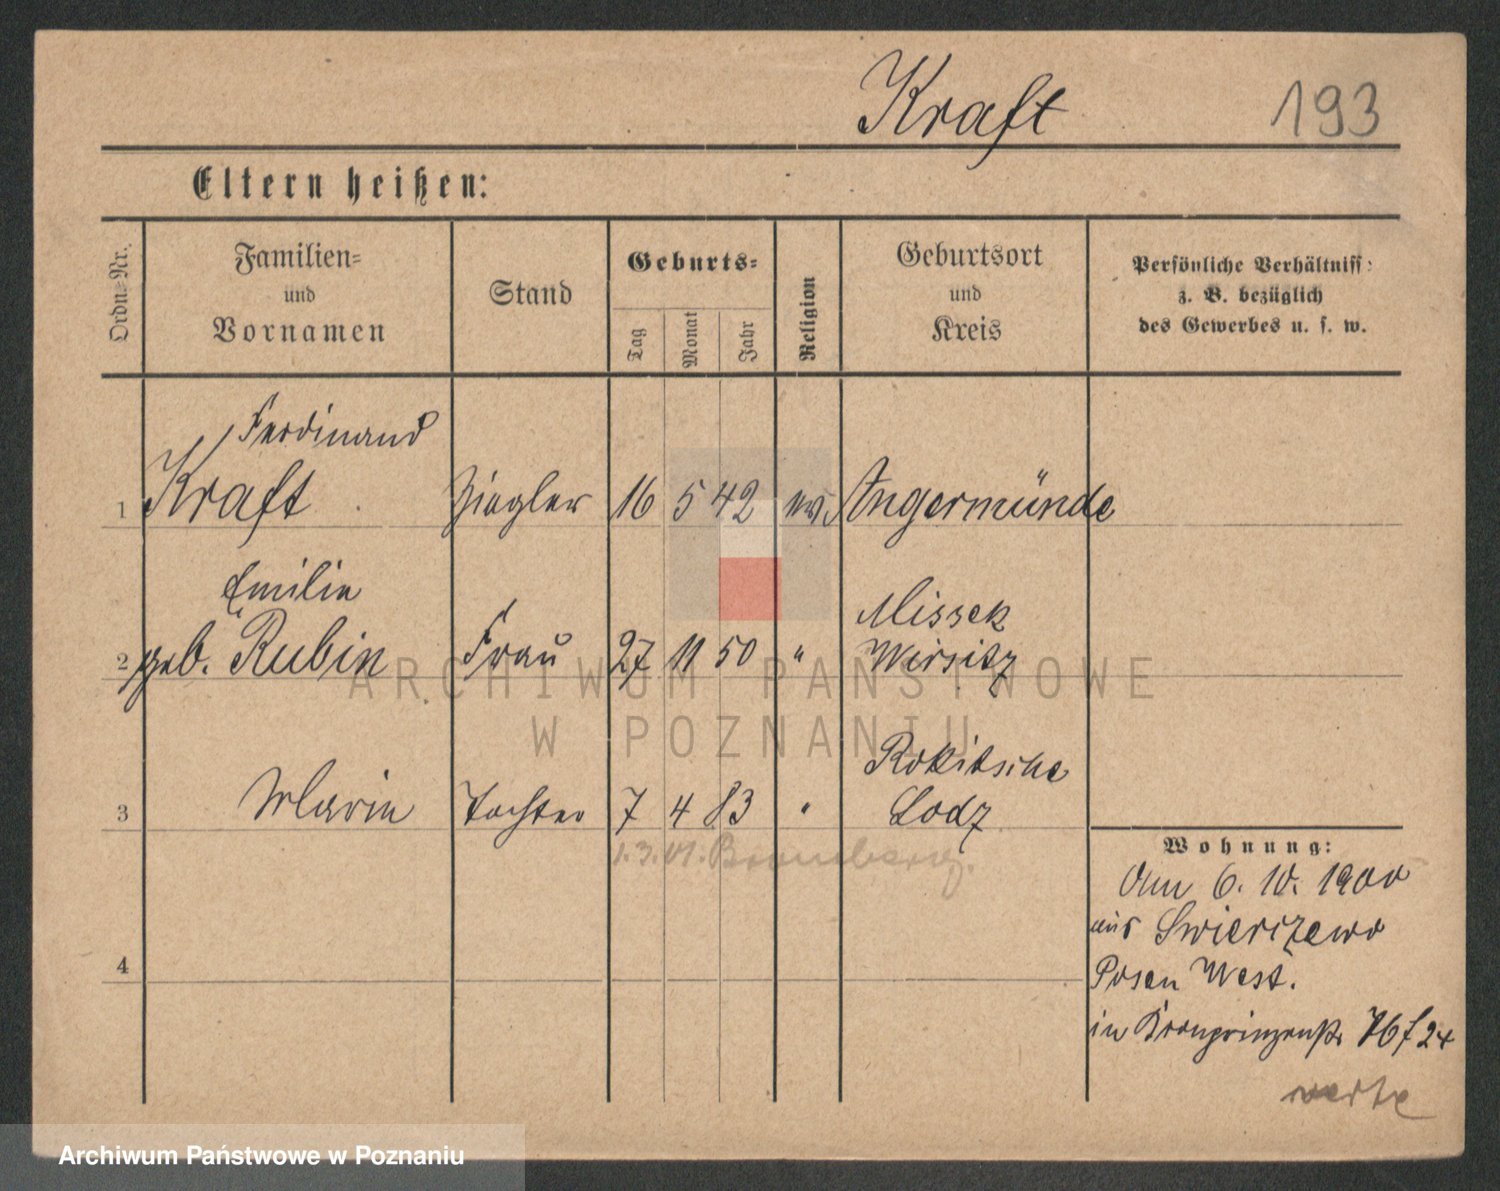 Kraft 193
Eltern heißen:
Ordn.-Nr.
Familien-
und
Vornamen
Stand
Geburts-
Tag
Monat
Jahr
Religion
Geburtsort
und
Kreis
Persönliche Verhältniss
z. B. bezüglich
des Gewerbes u. s. w.
Ferdinand
1 Kraft Ziegler 16 5 42 ev. Angermünde
Emilie Missek
2 geb. Rubin Frau 27 11 50 " Wirsitz
Rokitsche
3 Marie Tochter 7 4 83 " Lodz
1.3.01. Bromberg.
4
Wohnung:
Am 6. 10. 1900
aus Swierczewo
Posen West.
in Kronprinzenstr 76
ARCHIWUM PAŃSTWOWE
W POZNANIU
Archiwum Państwowe w Poznaniu